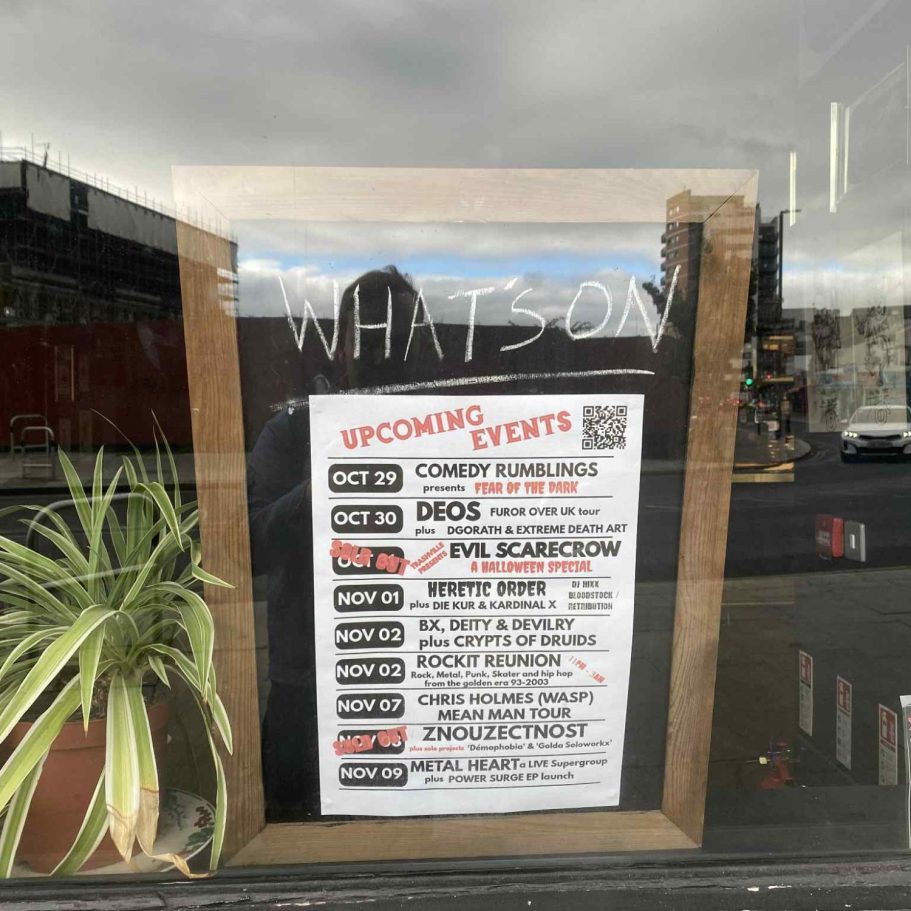 WHAT'S ON
UPCOMING
EVENTS
OCT 29 COMEDY RUMBLINGS
presents FEAR OF THE DARK
OCT 30 DEOS FUROR OVER UK tour
plus DGORATH & EXTREME DEATH ART
SOLD OUT TRASHVILLE PRESENTS EVIL SCARECROW
A HALLOWEEN SPECIAL
NOV 01 HERETIC ORDER DJ NIKK
BLOODSTOCK /
plus DIE KUR & KARDINAL X RETRIBUTION
NOV 02 BX, DEITY & DEVILRY
plus CRYPTS OF DRUIDS
NOV 02 ROCKIT REUNION 11PM - 3AM
Rock, Metal, Punk, Skater and hip hop
from the golden era 93-2003
NOV 07 CHRIS HOLMES (WASP)
MEAN MAN TOUR
SOLD OUT ZNOUZECTNOST
plus solo projects 'Démophobia' & 'Golda Soloworkx'
NOV 09 METAL HEART a LIVE Supergroup
plus POWER SURGE EP launch